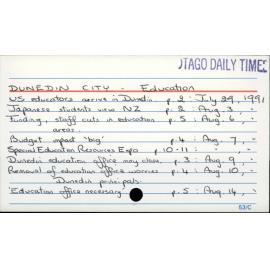 OTAGO DAILY TIMES
DUNEDIN CITY - Education
US educators arrive in Dunedin p. 2 : July 29, 1991
Japanese students view NZ p. 2 : Aug. 3, "
Funding, staff cuts in education areas. p. 5 : Aug. 6, "
Budget impact 'big' p. 4 : Aug. 7, "
Special Education Resources Expo p. 10-11 : " "
Dunedin education office may close. p. 3 : Aug. 9, "
Removal of education office worries p. 4 : Aug. 10, "
Dunedin principals.
'Education office necessary' p. 5 : Aug. 14, "
53/C